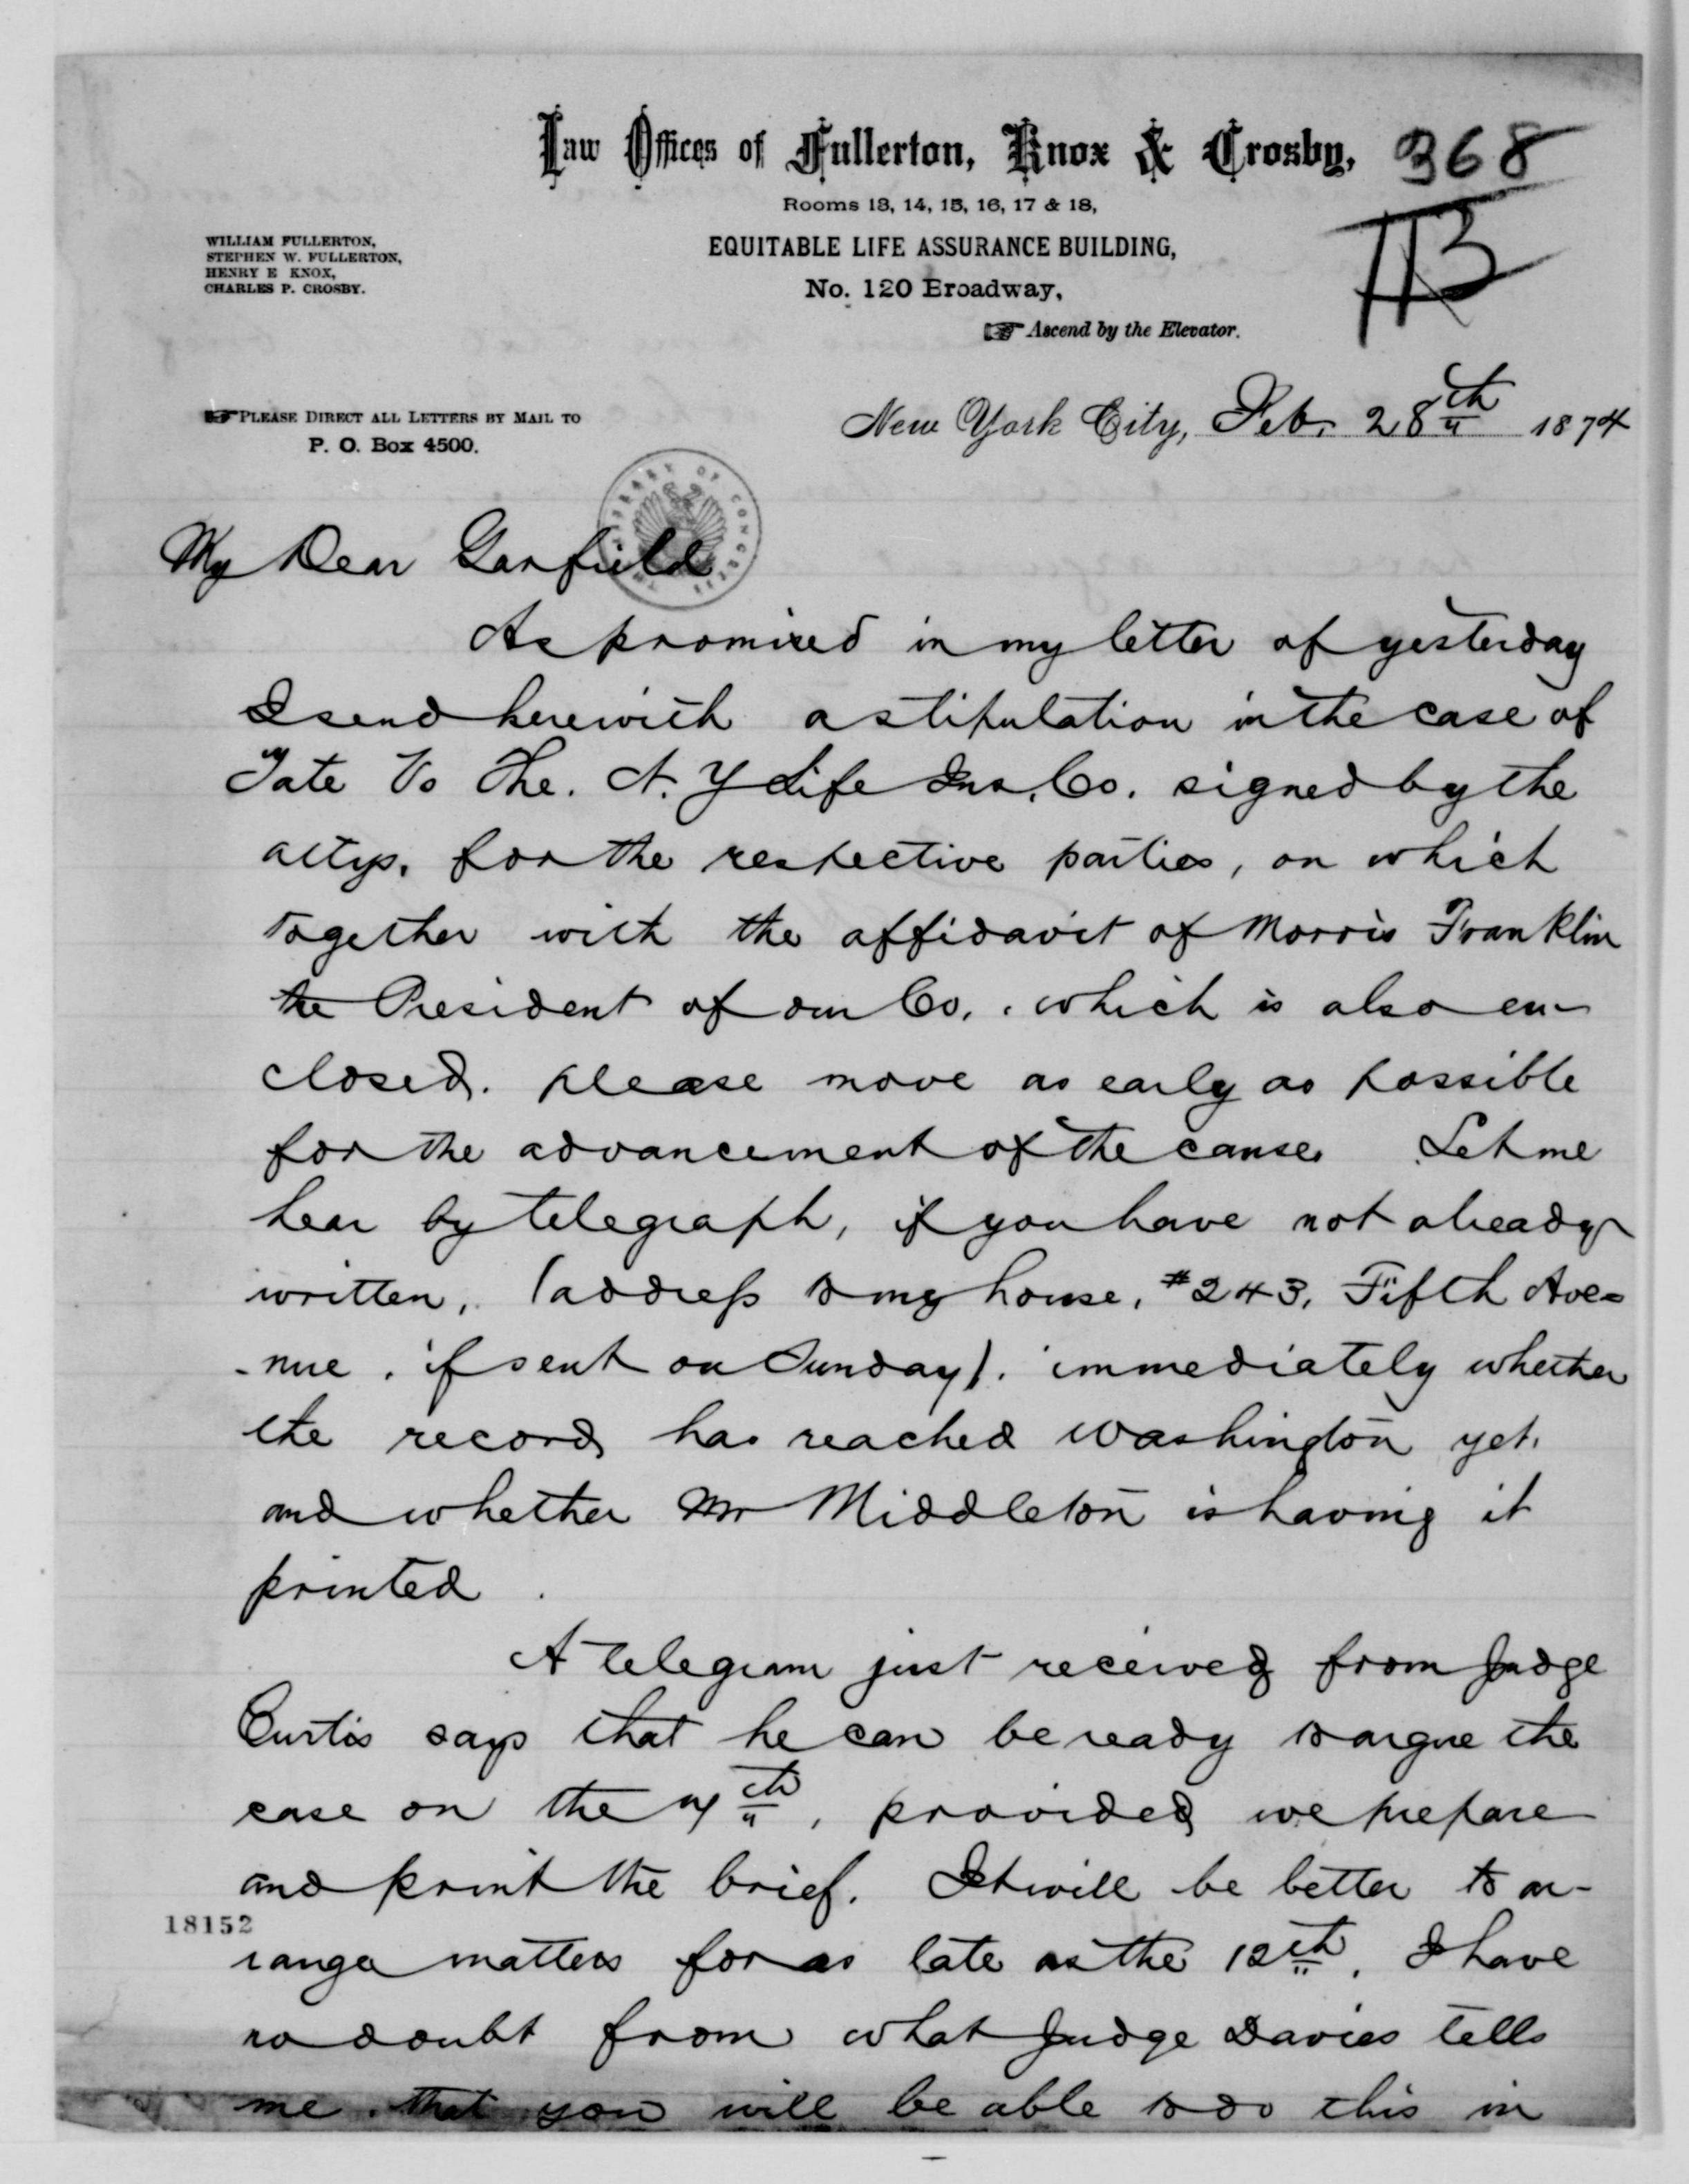 Law Offices of Fullerton, Knox & Crosby,
368
Rooms 13, 14, 15, 16, 17 & 18,
WILLIAM FULLERTON,
STEPHEN W. FULLERTON,
HENRY E KNOX,
CHARLES P. CROSBY.
EQUITABLE LIFE ASSURANCE BUILDING,
No. 120 Broadway,
Ascend by the Elevator.
PLEASE DIRECT ALL LETTERS BY MAIL TO
P. O. Box 4500.
New York City, Feb. 28th 1874
THE LIBRARY OF CONGRESS
My Dear Garfield
As promised in my letter of yesterday
I send herewith a stipulation in the case of
Tate Vs The. N. Y Life Ins. Co. signed by the
attys. for the respective parties, on which
together with the affidavit of Morris Franklin
the President of our Co., which is also en-
closed. please move as early as possible
for the advancement of the cause. Let me
hear by telegraph, if you have not already
written, (address to my house, #243, Fifth Ave=
-nue, if sent on Sunday). immediately whether
the record has reached Washington yet.
and whether Mr Middleton is having it
printed.
A telegram just received from Judge
Curtis says that he can be ready to argue the
case on the 4th, provided we prepare
and print the brief. It will be better to ar-
18152
range matters for as late as the 12th. I have
no doubt from what Judge Davies tells
me that you will be able to do this in